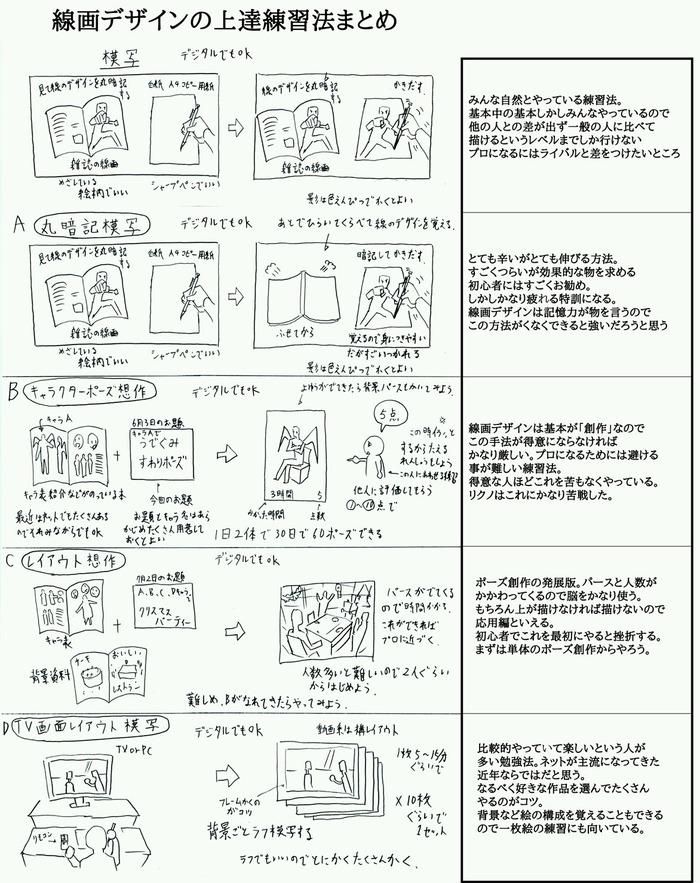 線画デザインの上達練習法まとめ
模写
デジタルでもOK
見て線のデザインを丸暗記する
白紙 A4コピー用紙
雑誌の線画
めざしている
絵柄でいい
シャープペンでいい
線のデザインを丸暗記する
かきだす
雑誌の線画
影は色えんぴつでぬくとよい
みんな自然とやっている練習法。
基本中の基本しかしみんなやっているので
他の人との差が出ず一般の人に比べて
描けるというレベルまでしか行けない
プロになるにはライバルと差をつけたいところ
A 丸暗記模写
デジタルでもOK
あとでひらいてくらべて線のデザインを覚える.
見て線のデザインを丸暗記する
白紙 A4コピー用紙
雑誌の線画
めざしている
絵柄でいい
シャープペンでいい
ふせてから
暗記してかきだす
覚えるので身につきやすい
だがすごいつかれる
影は色えんぴつでぬくとよい
とても辛いがとても伸びる方法。
すごくつらいが効果的な物を求める
初心者にはすごくお勧め。
しかしかなり疲れる特訓になる。
線画デザインは記憶力が物を言うので
この方法がくなくできると強いだろうと思う
B キャラクターポーズ想作
デジタルでもOK
よゆうがでてきたら背景パースもかいてみよう.
キャラA
キャラ表紹介などがのっている本
最近はネットでもたくさんある
のでそれみながらでもOK
6月3日のお題
キャラAで
うでぐみ
すわりポーズ
今回のお題
お題とキャラ名はあら
かじめたくさん用意して
おくとよい
3時間
5
かかった時間
点数
5点
この人にあわせる練習
他人に評価してもらう
①~⑩点で
1日2体で30日で60ポーズできる
線画デザインは基本が「創作」なので
この手法が得意にならなければ
かなり厳しい。プロになるためには避ける
事が難しい練習法。
得意な人ほどこれを苦もなくやっている。
リクノはこれにかなり苦戦した。
C レイアウト想作
デジタルでもOK
キャラ表
背景資料
ケーキ
おいしい
レストラン
7月2日のお題
A、B、C、Dキャラで
クリスマス
パーティー
パースがでてくる
ので時間かかる.
これができれば
プロに近づく.
人数多いと難しいので2人ぐらい
からはじめよう.
難しめ、Bがなれてきたらやってみよう.
ポーズ創作の発展版。パースと人数が
かかわってくるので脳をかなり使う。
もちろん上が描けなければ描けないので
応用編といえる。
初心者でこれを最初にやると挫折する。
まずは単体のポーズ創作からやろう。
D TV画面レイアウト模写
デジタルでもOK
動画系は横レイアウト
TV or PC
リモコン
フレームかくの
がコツ
背景ごとラフ模写する
1枚5~15分
ぐらいで
×10枚
ぐらいで
1セット
ラフでもいいのでとにかくたくさんかく.
比較的やっていて楽しいという人が
多い勉強法。ネットが主流になってきた
近年ならではだと思う。
なるべく好きな作品を選んでたくさん
やるのがコツ。
背景など絵の構成を覚えることもできる
ので一枚絵の練習にも向いている。